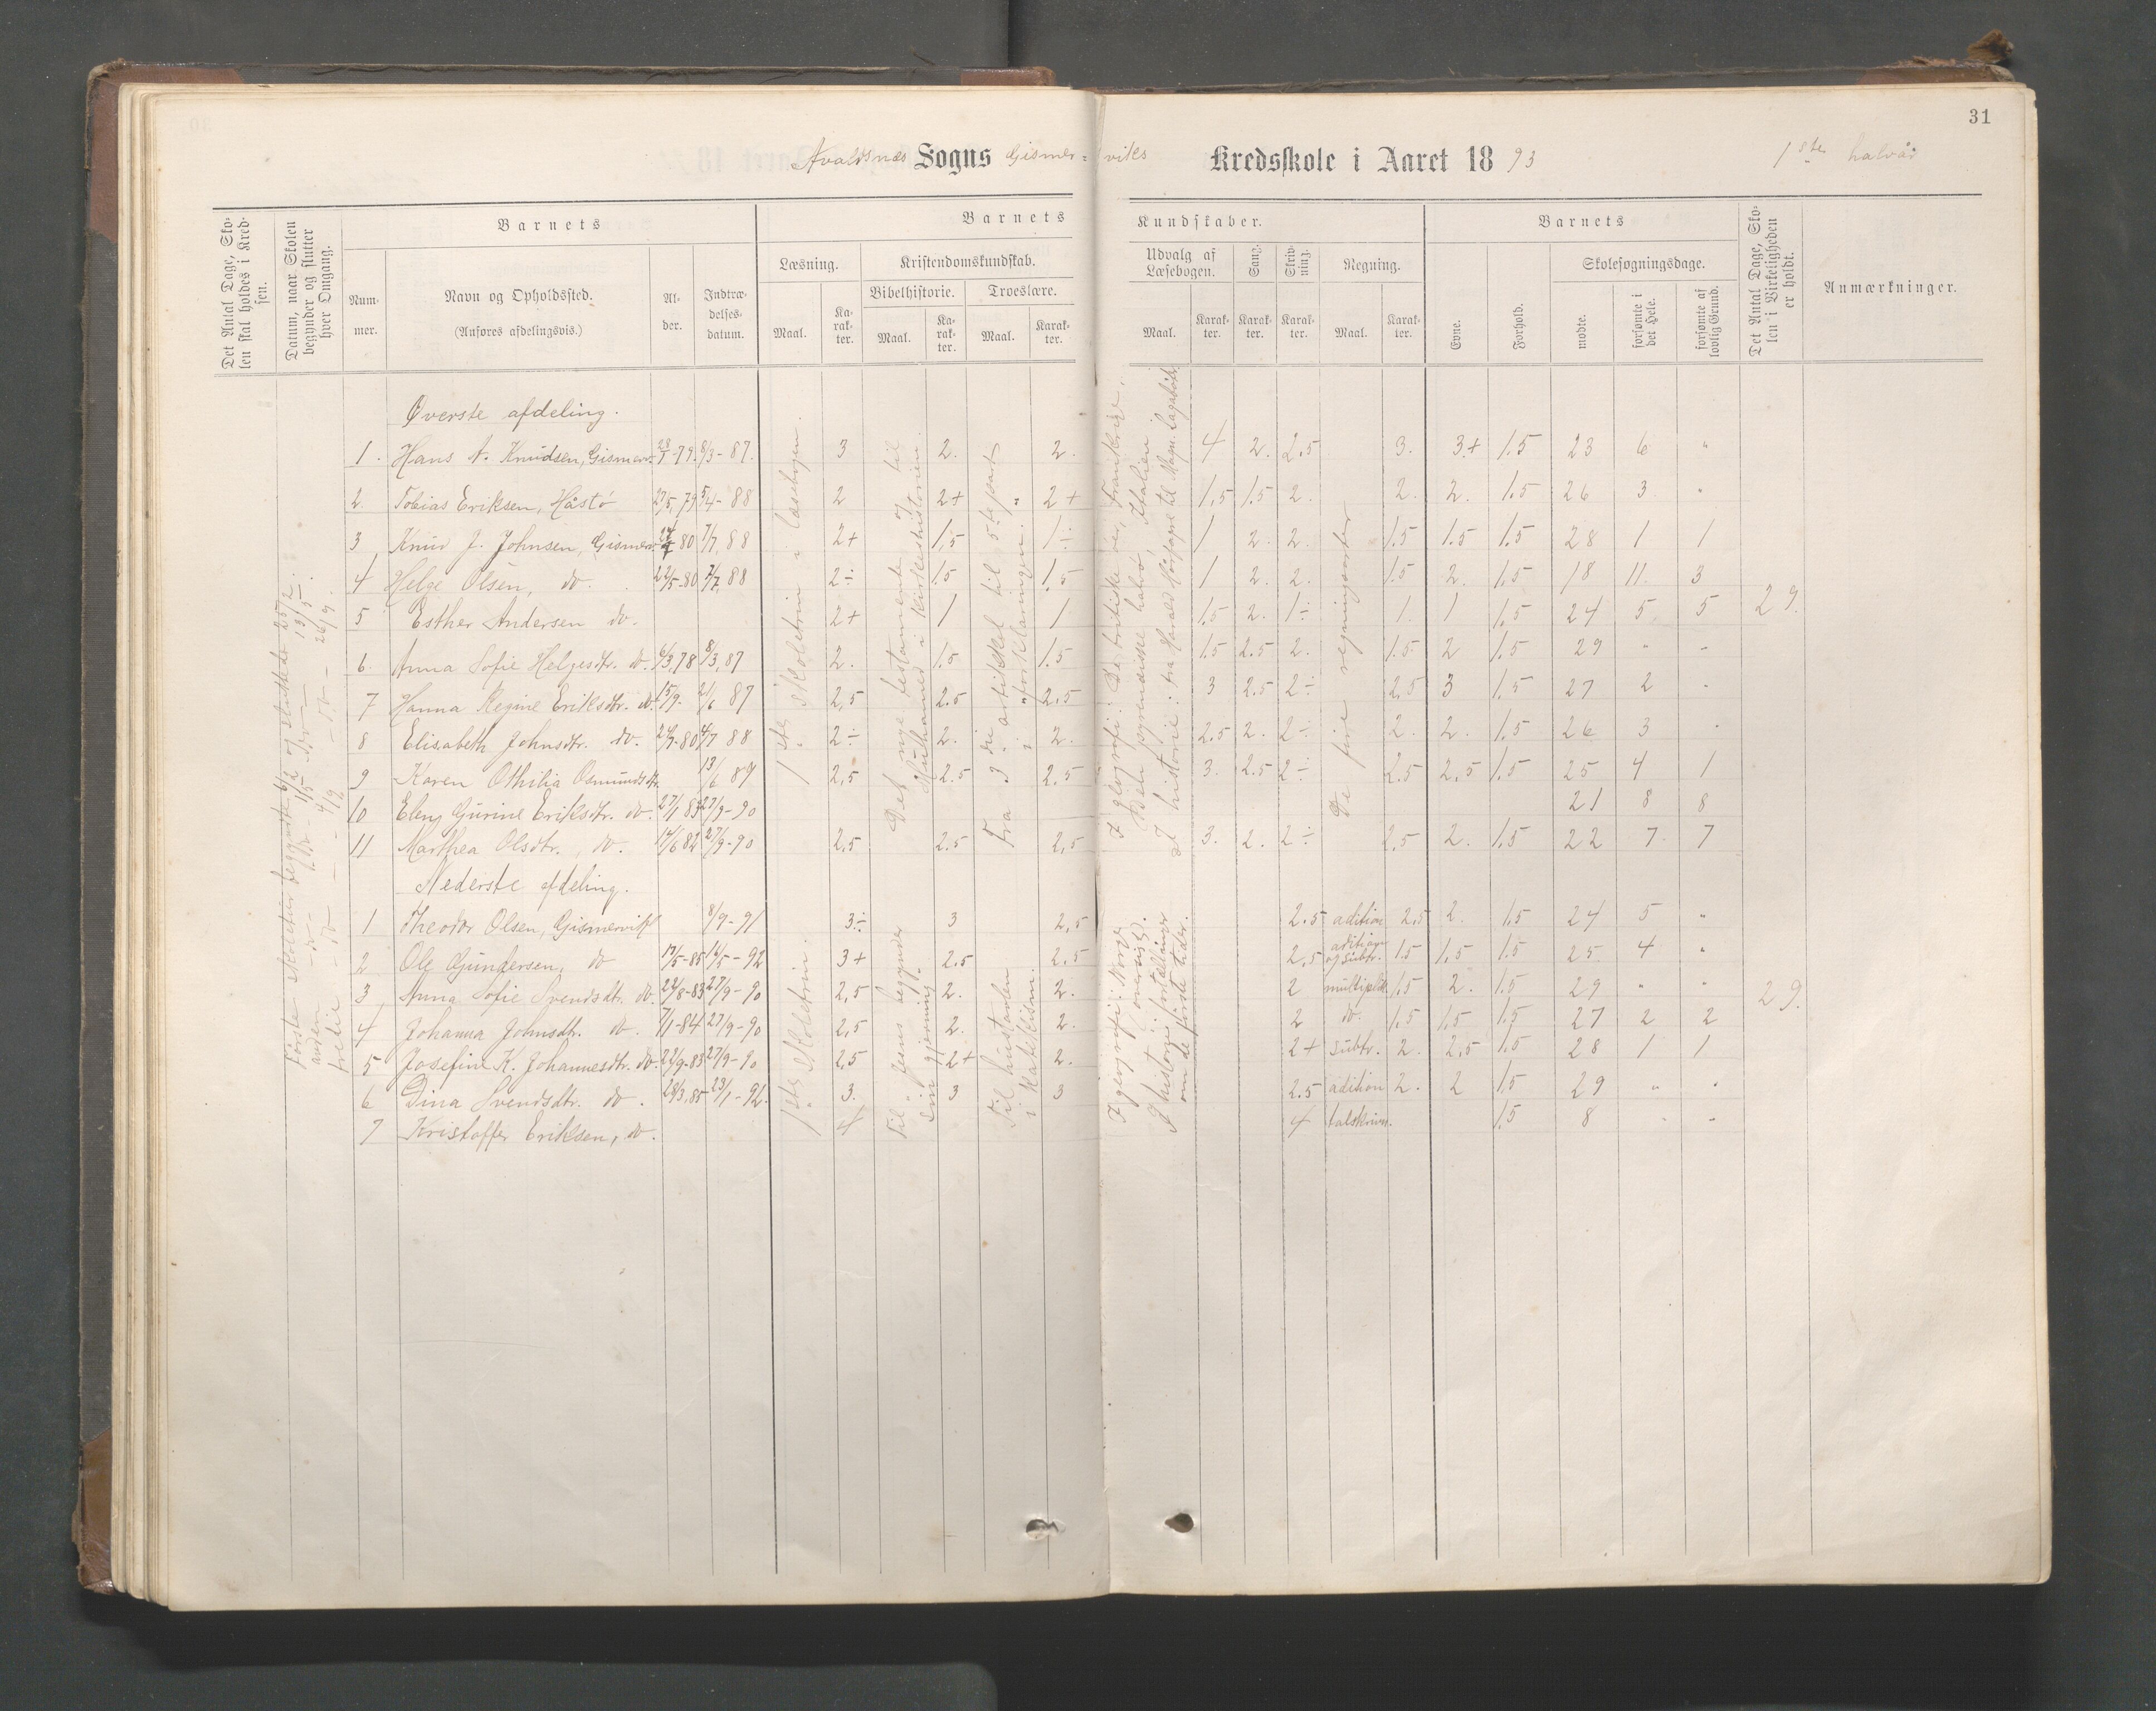 31
Avaldsnæs Sogns Gismer=viks Kredsskole i Aaret 1893 1ste halvår
Det Antal Dage, Skolen skal holdes i Kredsen.
Datum, naar Skolen begynder og slutter hver Omgang.
Barnets
Nummer.
Navn og Opholdssted.
(Anføres afdelingsvis.)
Alder.
Indtrædelsesdatum.
Barnets Kundskaber.
Læsning.
Maal. Karakter.
Kristendomskundskab.
Bibelhistorie. Troeslære.
Maal. Karakter. Maal. Karakter.
Udvalg af Læsebogen.
Maal. Karakter.
Sang. Karakter.
Skrivning. Karakter.
Regning.
Maal. Karakter.
Barnets
Evne. Forhold.
Skolesøgningsdage.
mødte. forsømte i det Hele. forsømte af lovlig Grund.
Det Antal Dage, Skolen i Virkeligheden er holdt.
Anmærkninger.
Øverste afdeling.
1. Hans A. Knudsen, Gismerv. 28/7-79. 8/3-87. 3 2. 2. 4 2. 2.5 3. 3+ 1.5 23 6 "
2. Tobias Eriksen, Håstø 27/5,79 5/4-88 2 2+ 2+ 1,5 1.5 2. 2. 2. 1.5 26 3 "
3 Knud J. Johnsen, Gismerv. 80 7/7,88 2+ 1,5 1÷ 1 2. 2. 1.5 1.5 1.5 28 1 1
4 Helge Olsen, do. 22/5-80 7/7,88 2÷ 1.5 1.5 1 2. 2. 1.5 2. 1.5 18 11. 3
5 Esther Andersen do. 2+ 1 1 1.5 2. 1÷ 1. 1 1.5 24 5 5 29.
6. Anna Sofie Helgesdtr. do. 6/3,78 8/3,87 2. 1.5 1.5 1.5 2.5 2. 1.5 2 1.5 29 " "
7 Hanna Regine Eriksdtr. do. 15/9- 21/6 87 2,5 2.5 2.5 3 2.5 2÷ 2,5 3 1.5 27 2 "
8 Elisabeth Johnsdtr. do. 24/7-80 4/7 88 2÷ 2. 2. 2.5 2. 2÷ 2. 2. 1.5 26 3 "
9 Karen Othilia Osmundsdtr. 13/6 89 2,5 2.5 2.5 3. 2.5 2÷ 2.5 2,5 1.5 25 4 1
10 Eleny Gurine Eriksdtr. do. 27/1 83 27/9-90 21 8 8
11 Marthea Olsdtr., do. 14/6 82 27/9-90 2,5 2.5 2,5 3. 2. 2÷ 2,5 2. 1.5 22 7 7
1ste skoletrin i læsebogen.
Det nye testamente til
Muhamed i kirkeshistorien.
Fra 3die artikkel til 5te part
" " i forklaringen.
I geografi: De britiske øer, Frankrige,
Den pyrenæiske halvø, Italien.
I historie: fra Harald Hårfagre til Magn. Lagabøter
De fire regningsarter
Nederste afdeling.
1 Theodor Olsen, Gismervik 8/9-91 3÷ 3 2,5 2.5 adition 2.5 2. 1.5 24 5 "
2 Ole Gundersen, do 13/5-85 16/5-92 3+ 2.5 2.5 2,5 adition og subtr. 1.5 1.5 1.5 25 4 "
3 Anna Sofie Svendsdtr. do. 22/8-83 27/9-90 2,5 2. 2. 2 multiplik. 1.5 2. 1.5 29 " " 29.
4 Johanna Johnsdtr. do. 7/1-84 27/9-90 2,5 2. 2. 2 do. 1,5 1.5 1.5 27 2 2
5 Josefine K. Johannesdtr. do. 22/9-83 27/9-90 2,5 2+ 2. 2+ subtr. 2. 2,5 1.5 28 1 1
6 Dina Svendsdtr. do. 28/3,85 23/1-92. 3. 3 3 2.5 adition 2. 2 1.5 29 " "
7 Kristoffer Eriksen, do. 4 4 talskrivn. 1.5 8 - -
1ste skoletrin.
Til Jesus begynder
sin gjerning.
Til hustavlen
i katekism.
I geografi: Norge
oversigt.
I historie: fortællinger
om de første tider.
Første skoletur begyndte 6/2 og sluttede 25/2.
anden - do - 1/5 do 13/5.
tredie - do - 4/9 - do - 26/9.